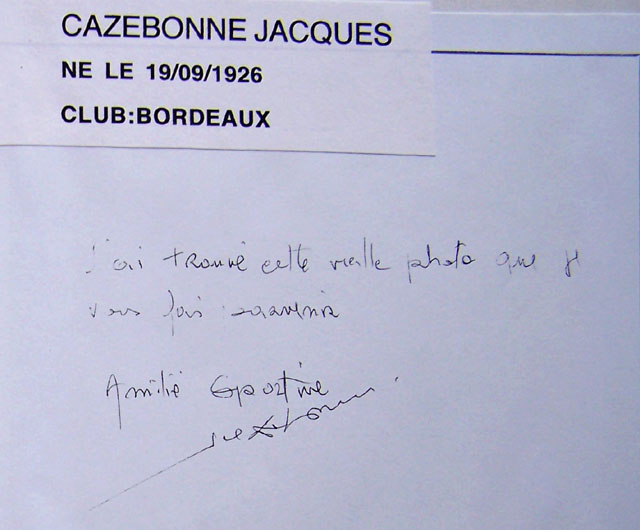 CAZEBONNE JACQUES
NE LE 19/09/1926
CLUB:BORDEAUX
J'ai trouvé cette vieille photo que je
vous fais
Amitié Sportive